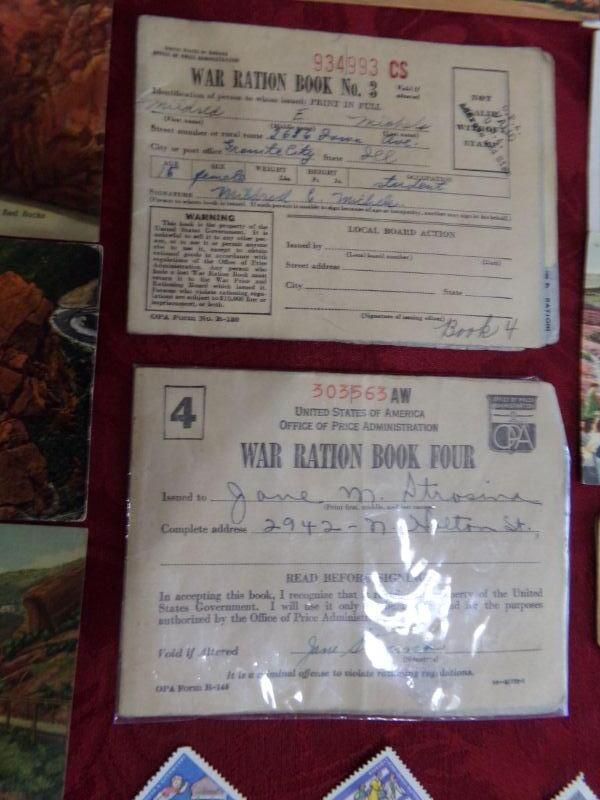 UNITED STATES OF AMERICA
OFFICE OF PRICE ADMINISTRATION
934993 CS
WAR RATION BOOK No. 3
Void if altered
Identification of person to whom issued: PRINT IN FULL
Mildred E. Michels
(First name) (Middle name) (Last name)
Street number or rural route 2686 Iowa Ave.
City or post office Granite City State Ill
AGE SEX WEIGHT HEIGHT OCCUPATION
16 female Lbs. Ft. In. student
SIGNATURE Mildred E. Michels
(Person to whom book is issued. If such person is unable to sign because of age or incapacity, another may sign in his behalf.)
NOT
VALID
WITHOUT
STAMP
WARNING
This book is the property of the
United States Government. It is
unlawful to sell it to any other per-
son, or to use it or permit anyone
else to use it, except to obtain
rationed goods in accordance with
regulations of the Office of Price
Administration. Any person who
finds a lost War Ration Book must
return it to the War Price and
Rationing Board which issued it.
Persons who violate rationing regu-
lations are subject to $10,000 fine or
imprisonment, or both.
OPA Form No. R-130
LOCAL BOARD ACTION
Issued by
(Local board number) (Date)
Street address
City State
(Signature of issuing officer)
Book 4
Red Rocks
4
303563 AW
UNITED STATES OF AMERICA
OFFICE OF PRICE ADMINISTRATION
OFFICE OF PRICE
ADMINISTRATION
OPA
WAR RATION BOOK FOUR
Issued to Jane M. Strosina
(Print first, middle, and last names)
Complete address 2942 - N. Holton St.
READ BEFORE SIGNING
In accepting this book, I recognize that it property of the United
States Government. I will use it only and for the purposes
authorized by the Office of Price
Void if Altered Jane
(Signature)
It is a criminal offense to violate rationing regulations.
OPA Form R-145